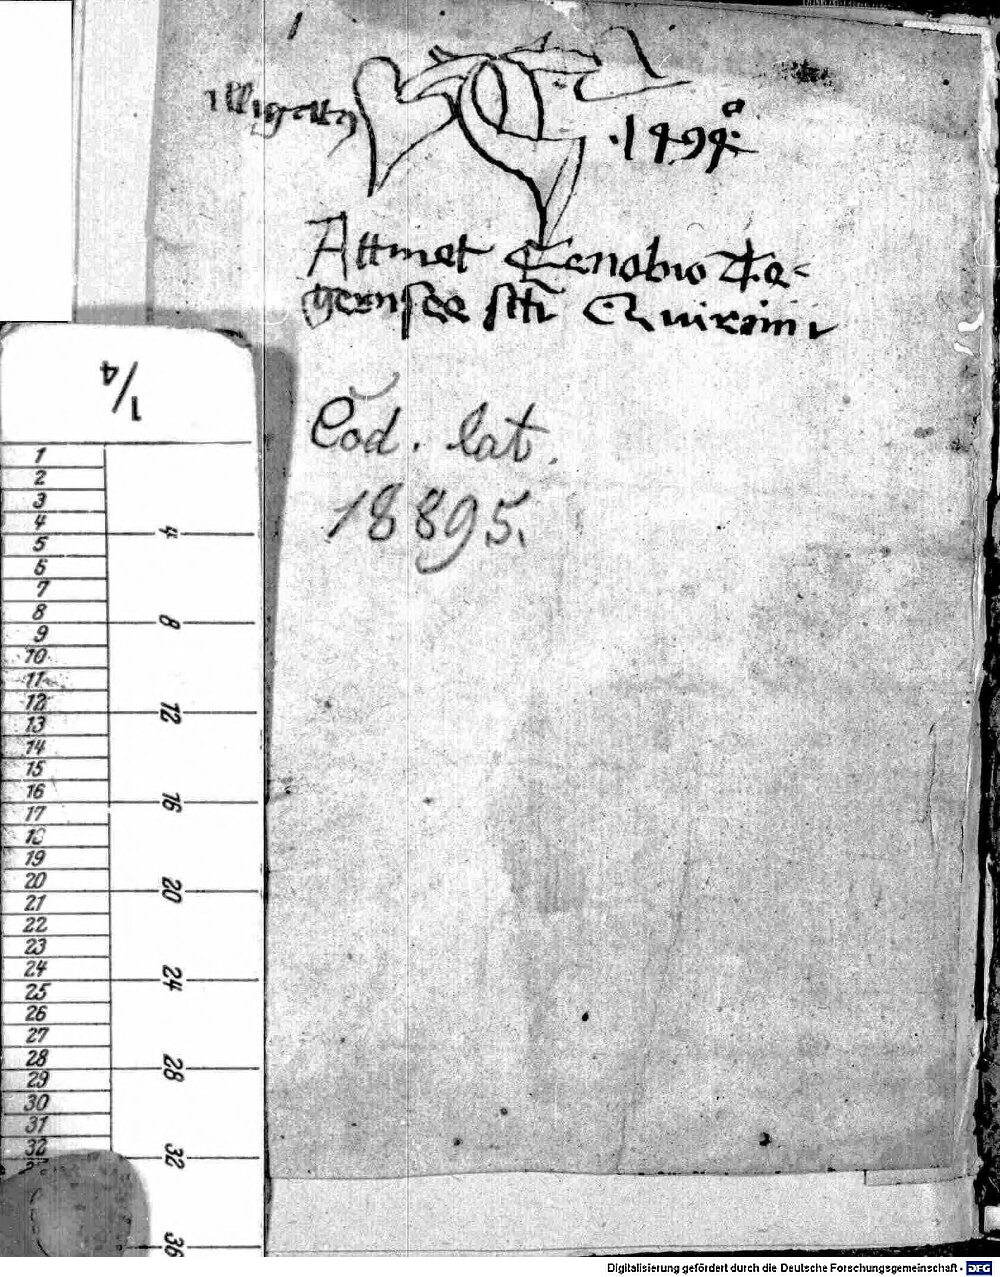 1
illigatus
.1494.
Attinet Cenobio Te-
gernsee scti Quirini
Cod. lat.
18895.
1/4
1
2
3
4
5
6
7
8
9
10
11
12
13
14
15
16
17
18
19
20
21
22
23
24
25
26
27
28
29
30
31
32
4
8
12
16
20
24
28
32
36
Digitalisierung gefördert durch die Deutsche Forschungsgemeinschaft - DFG